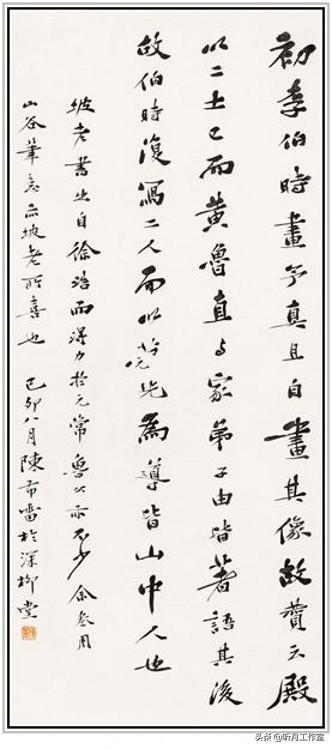 初李伯時畫予真且自畫其像故贊云殿
以二士已而黃魯直与家弟子由皆著語其後
故伯時復寫二人而以葆光為導皆山中人也
坡老書出自徐浩而得力於元常魯公亦不少余參用
山谷筆意亦坡老所喜也 己卯八月陳布雷於深柳堂
头条@听月工作室